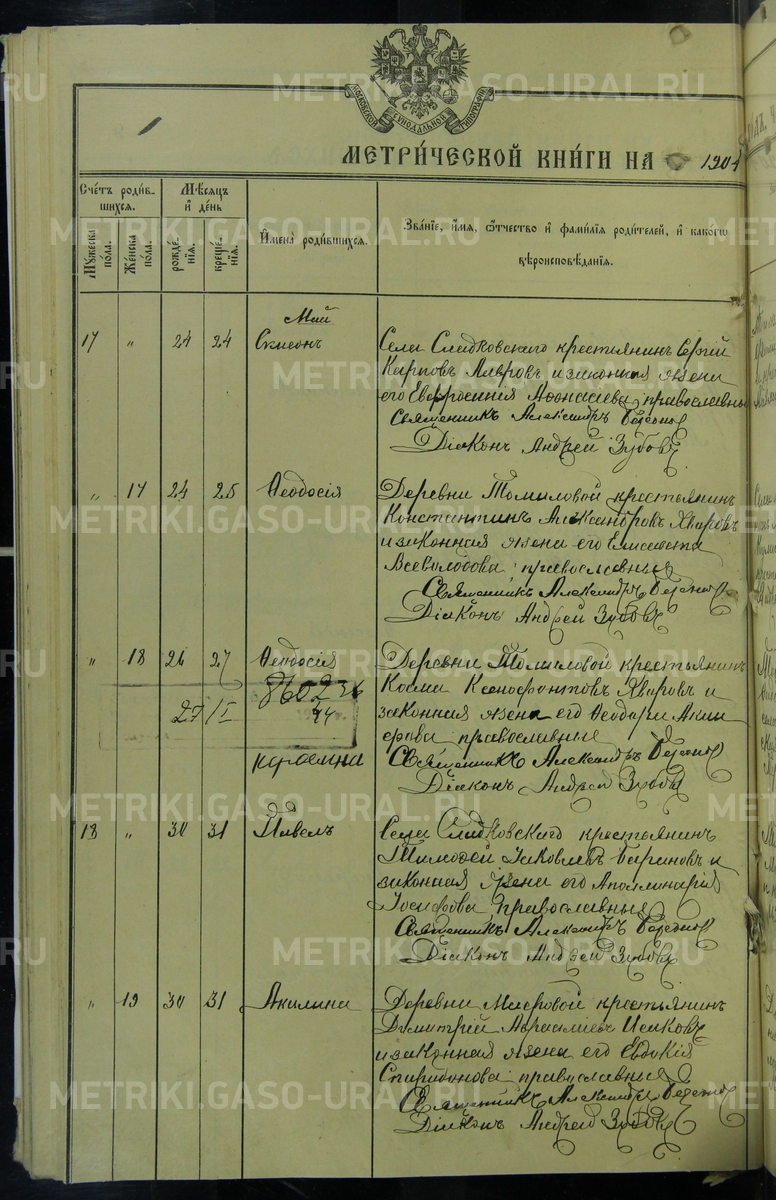 МОСКОВСКОЙ СУНОДАЛЬНОЙ ТИПОГРАФІИ
МЕТРИ́ЧЕСКОЙ КНИ́ГИ НА 1904
Сче́тъ роди́вшихся.
Мѣ́сяцъ и́ де́нь
Му́жеска по́ла.
Же́нска по́ла.
рожде́нія.
креще́нія.
И́мена̀ роди́вшихся.
Зва́ніе, и́мя, ѻ́тчество и́ фами́лія роди́телей, и́ како́гѡ вѣроисповѣ́данія.
Май
17 " 24 24 Симеонъ
Села Сладковскаго крестьянинъ Сергій
Карповъ Лавровъ и законная жена
его Евфросинія Аѳонасіева, православные
Священникъ Александръ
Діаконъ Андрей Зубовъ
" 17 24 25 Ѳеодосія
Деревни Томиловой крестьянинъ
Константинъ Александровъ Яваровъ
и законная жена его Елисавета
Всеволодова православные
Священникъ Александръ
Діаконъ Андрей Зубовъ
" 18 26 27 Ѳеодосія
8602
27/I 44
Деревни Томиловой крестьянинъ
Косма Ксенофонтовъ Яваровъ и
законная жена его Ѳеодора
православные
Священникъ Александръ
Діаконъ Андрей Зубовъ
18 " 30 31 Павелъ
Села Сладковскаго крестьянинъ
Тимоѳей Іаковлевъ Барановъ и
законная жена его Аполлинарія
Іосифова православные
Священникъ Александръ
Діаконъ Андрей Зубовъ
" 19 30 31 Акилина
Деревни Масровой крестьянинъ
Димитрій Авраамiевъ Исаковъ
и законная жена его Евдокія
Спиридонова православные
Священникъ Александръ
Діаконъ Андрей Зубовъ
METRIKI.GASO-URAL.RU